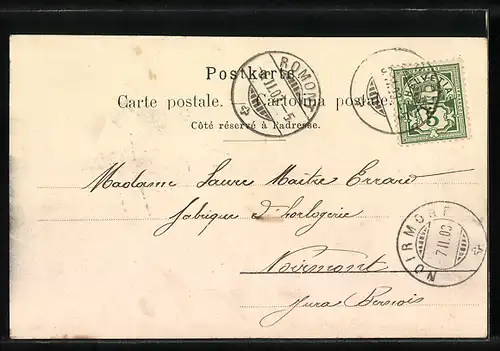 Postkarte.
Carte postale. Cartolina postale.
Côté réservé à l'adresse.
ROMONT
7.II.03-5
Madame Laure Maître Errard
fabrique d'horlogerie
Noirmont
Jura Bernois
NOIRMONT
7.II.03
5